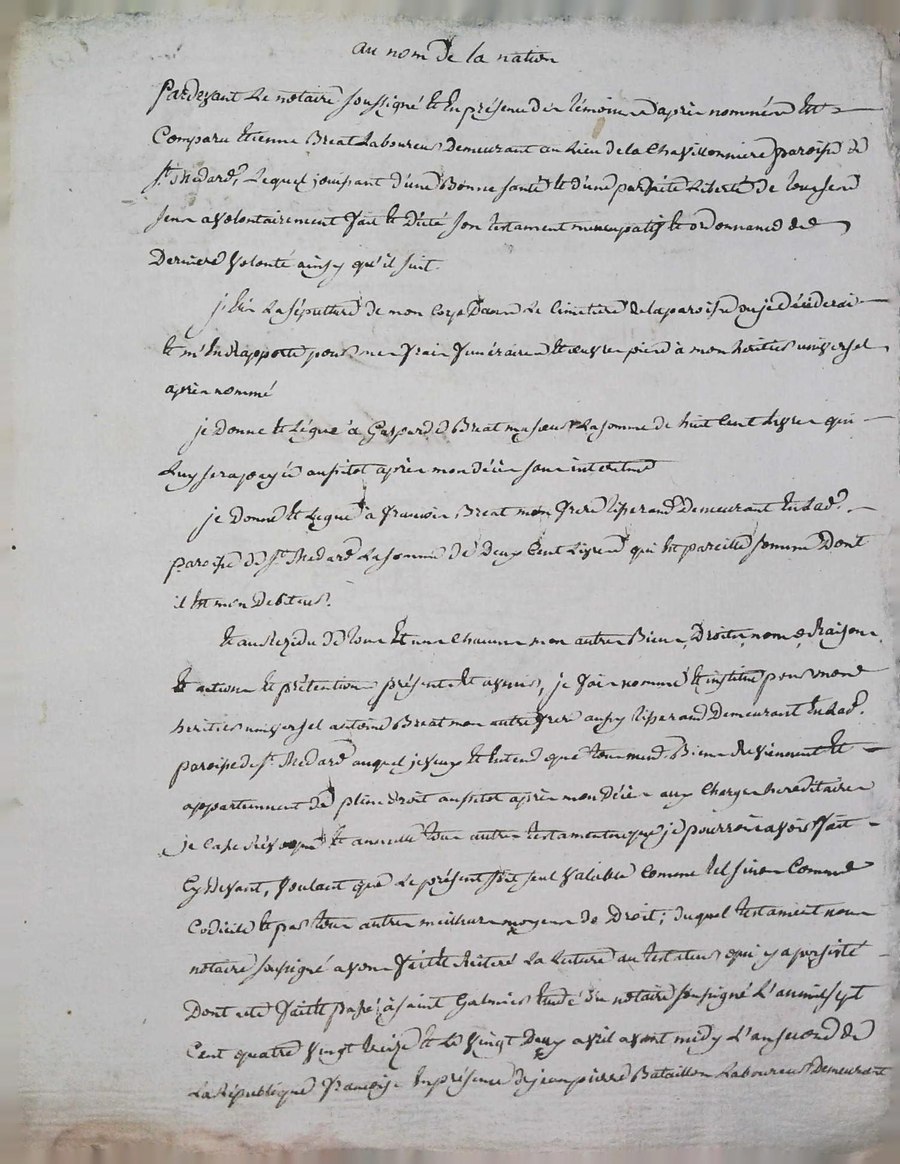 au nom de la nation
Pardevant Le notaire soussigné Et En présence des témoins cy après nommés Est
Comparu Etienne Breat Laboureur Demeurant au Lieu de la Chavillonniere paroisse de
St Medard, Lequel jouissant d'une Bonne santé Et d'une parfaite Liberté De tous ses
sens a volontairement fait Et Dicté son testament nuncupatif Et ordonnance de
Derniere volonté ainsy qu'il suit.
j'Elis La sépulture de mon Corps Dans Le Cimetiere de la paroisse ou je décéderai
Et m'En rapporte pour mes frais funéraires Et œuvres pies à mon heritier universel
après nommé
je Donne Et Legue à Gasparde Breat ma sœur La somme de huit Cent Livres qui
Luy sera payée aussitot après mon décès sans interets
je Donne Et Legue à François Breat mon frere Tisserand Demeurant En Lad.
paroisse de St Medard La somme de Deux Cent Livres qui Est pareille somme Dont
il Est mon Debiteur.
Et au Rezidu de tous Et uns Chacuns mes autres Biens, Droits, noms, Raisons,
Et actions Et prétentions présents Et avenir, je fais nomme Et institue pour mon
heritier universel antoine Breat mon autre frere aussy Tisserand Demeurant En Lad.
paroisse de St Medard auquel je veux Et Entend que tous mesd. Biens Reviennent Et
appartiennent De plein droit aussitot après mon Décès aux Charges hereditaires
je Casse Révoque Et annulle tous autres testaments que je pourrois avoir fait
Cy Devant, voulant que Le présent soit seul valable Comme tel sinon Comme
Codicile Et par tous autres meilleurs moyens de Droit; duquel testament nous
notaire soussigné avons fait Et Réiteré La Lecture au testateur qui y a persisté
Dont acte fait Et passé à saint Galmier Etude du notaire soussigné L'an mil sept
Cent quatre vingt treize Et Le vingt Deux avril avant midy L'an second de
La République françoise En présence de jean pierre Bataillon Laboureur Demeurant